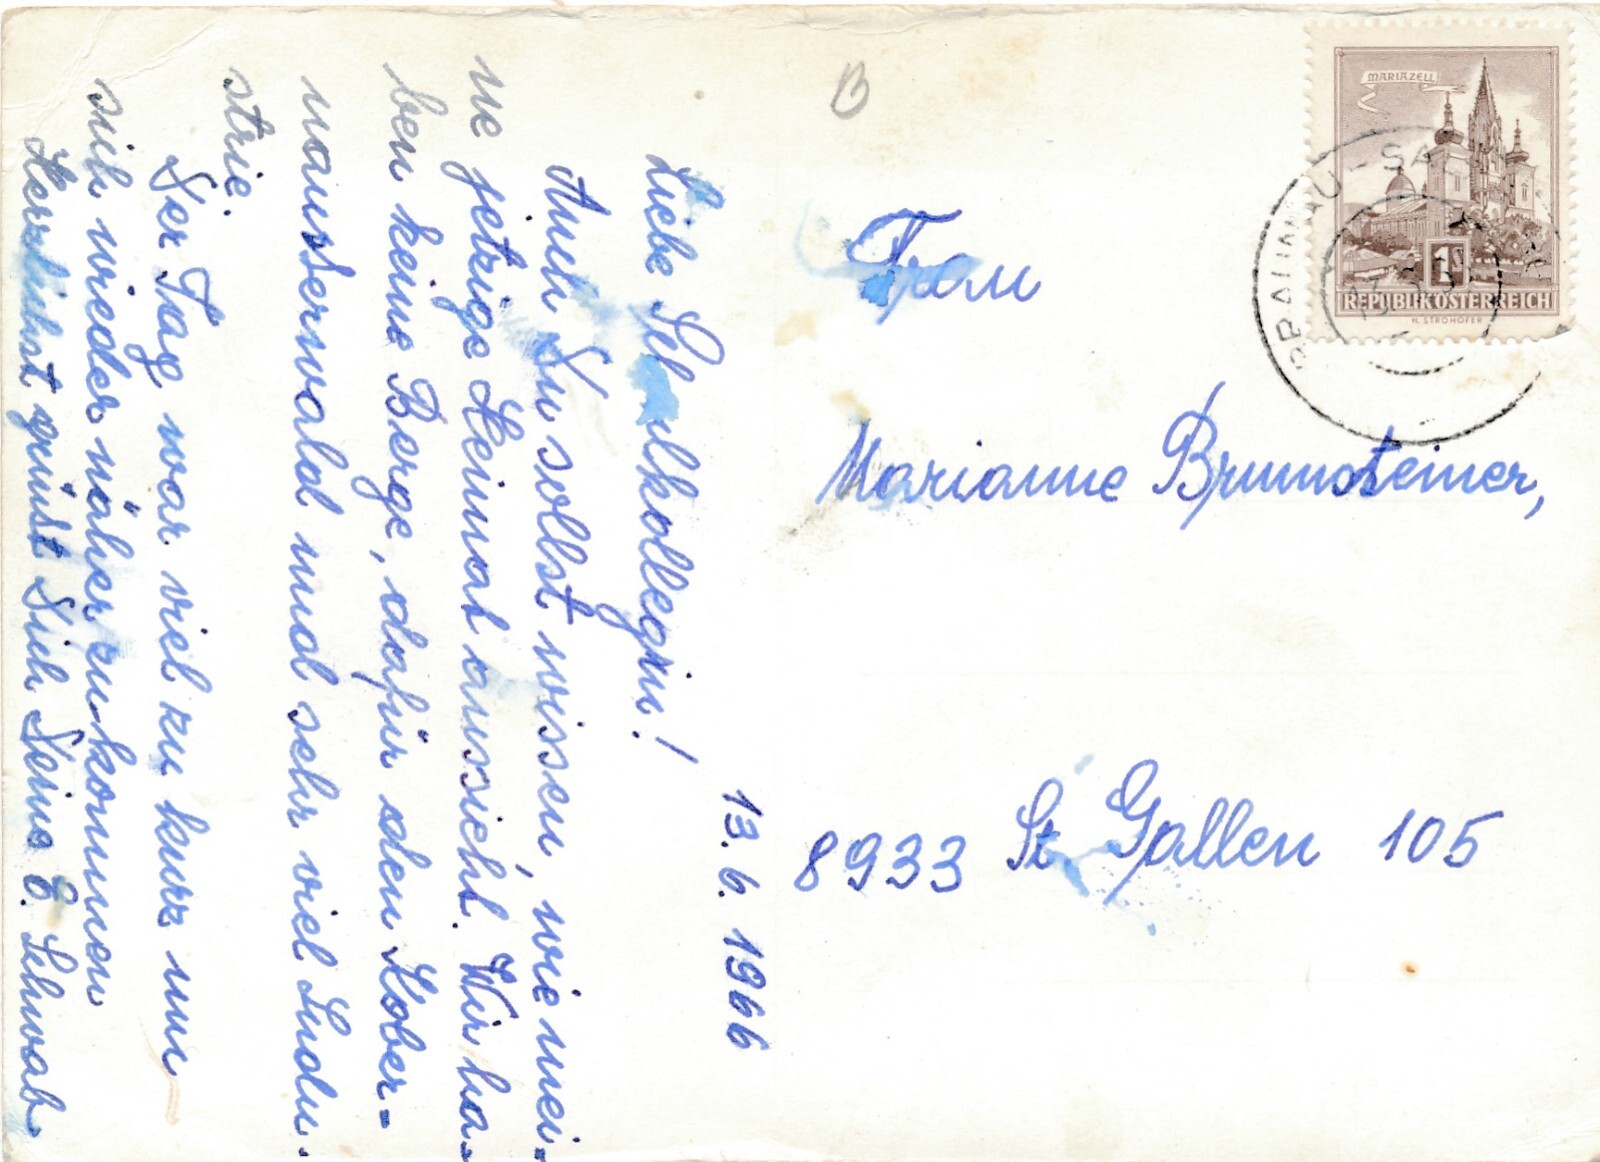 13. 6. 1966
Liebe Schulkollegin!
Auch Du sollst wissen, wie mei-
ne jetzige Heimat aussieht. Wir ha-
ben keine Berge, dafür den Kober-
nausserwald und sehr viel Indu-
strie.
Der Tag war viel zu kurz um
sich wieder näher zu kommen
Herzlichst grüsst Dich Deine E. Schwab
B
Frau
Marianne Brunnsteiner,
8933 St. Gallen 105
MARIAZELL
1
REPUBLIK ÖSTERREICH
H. STROHOFER
BRAUNAU-